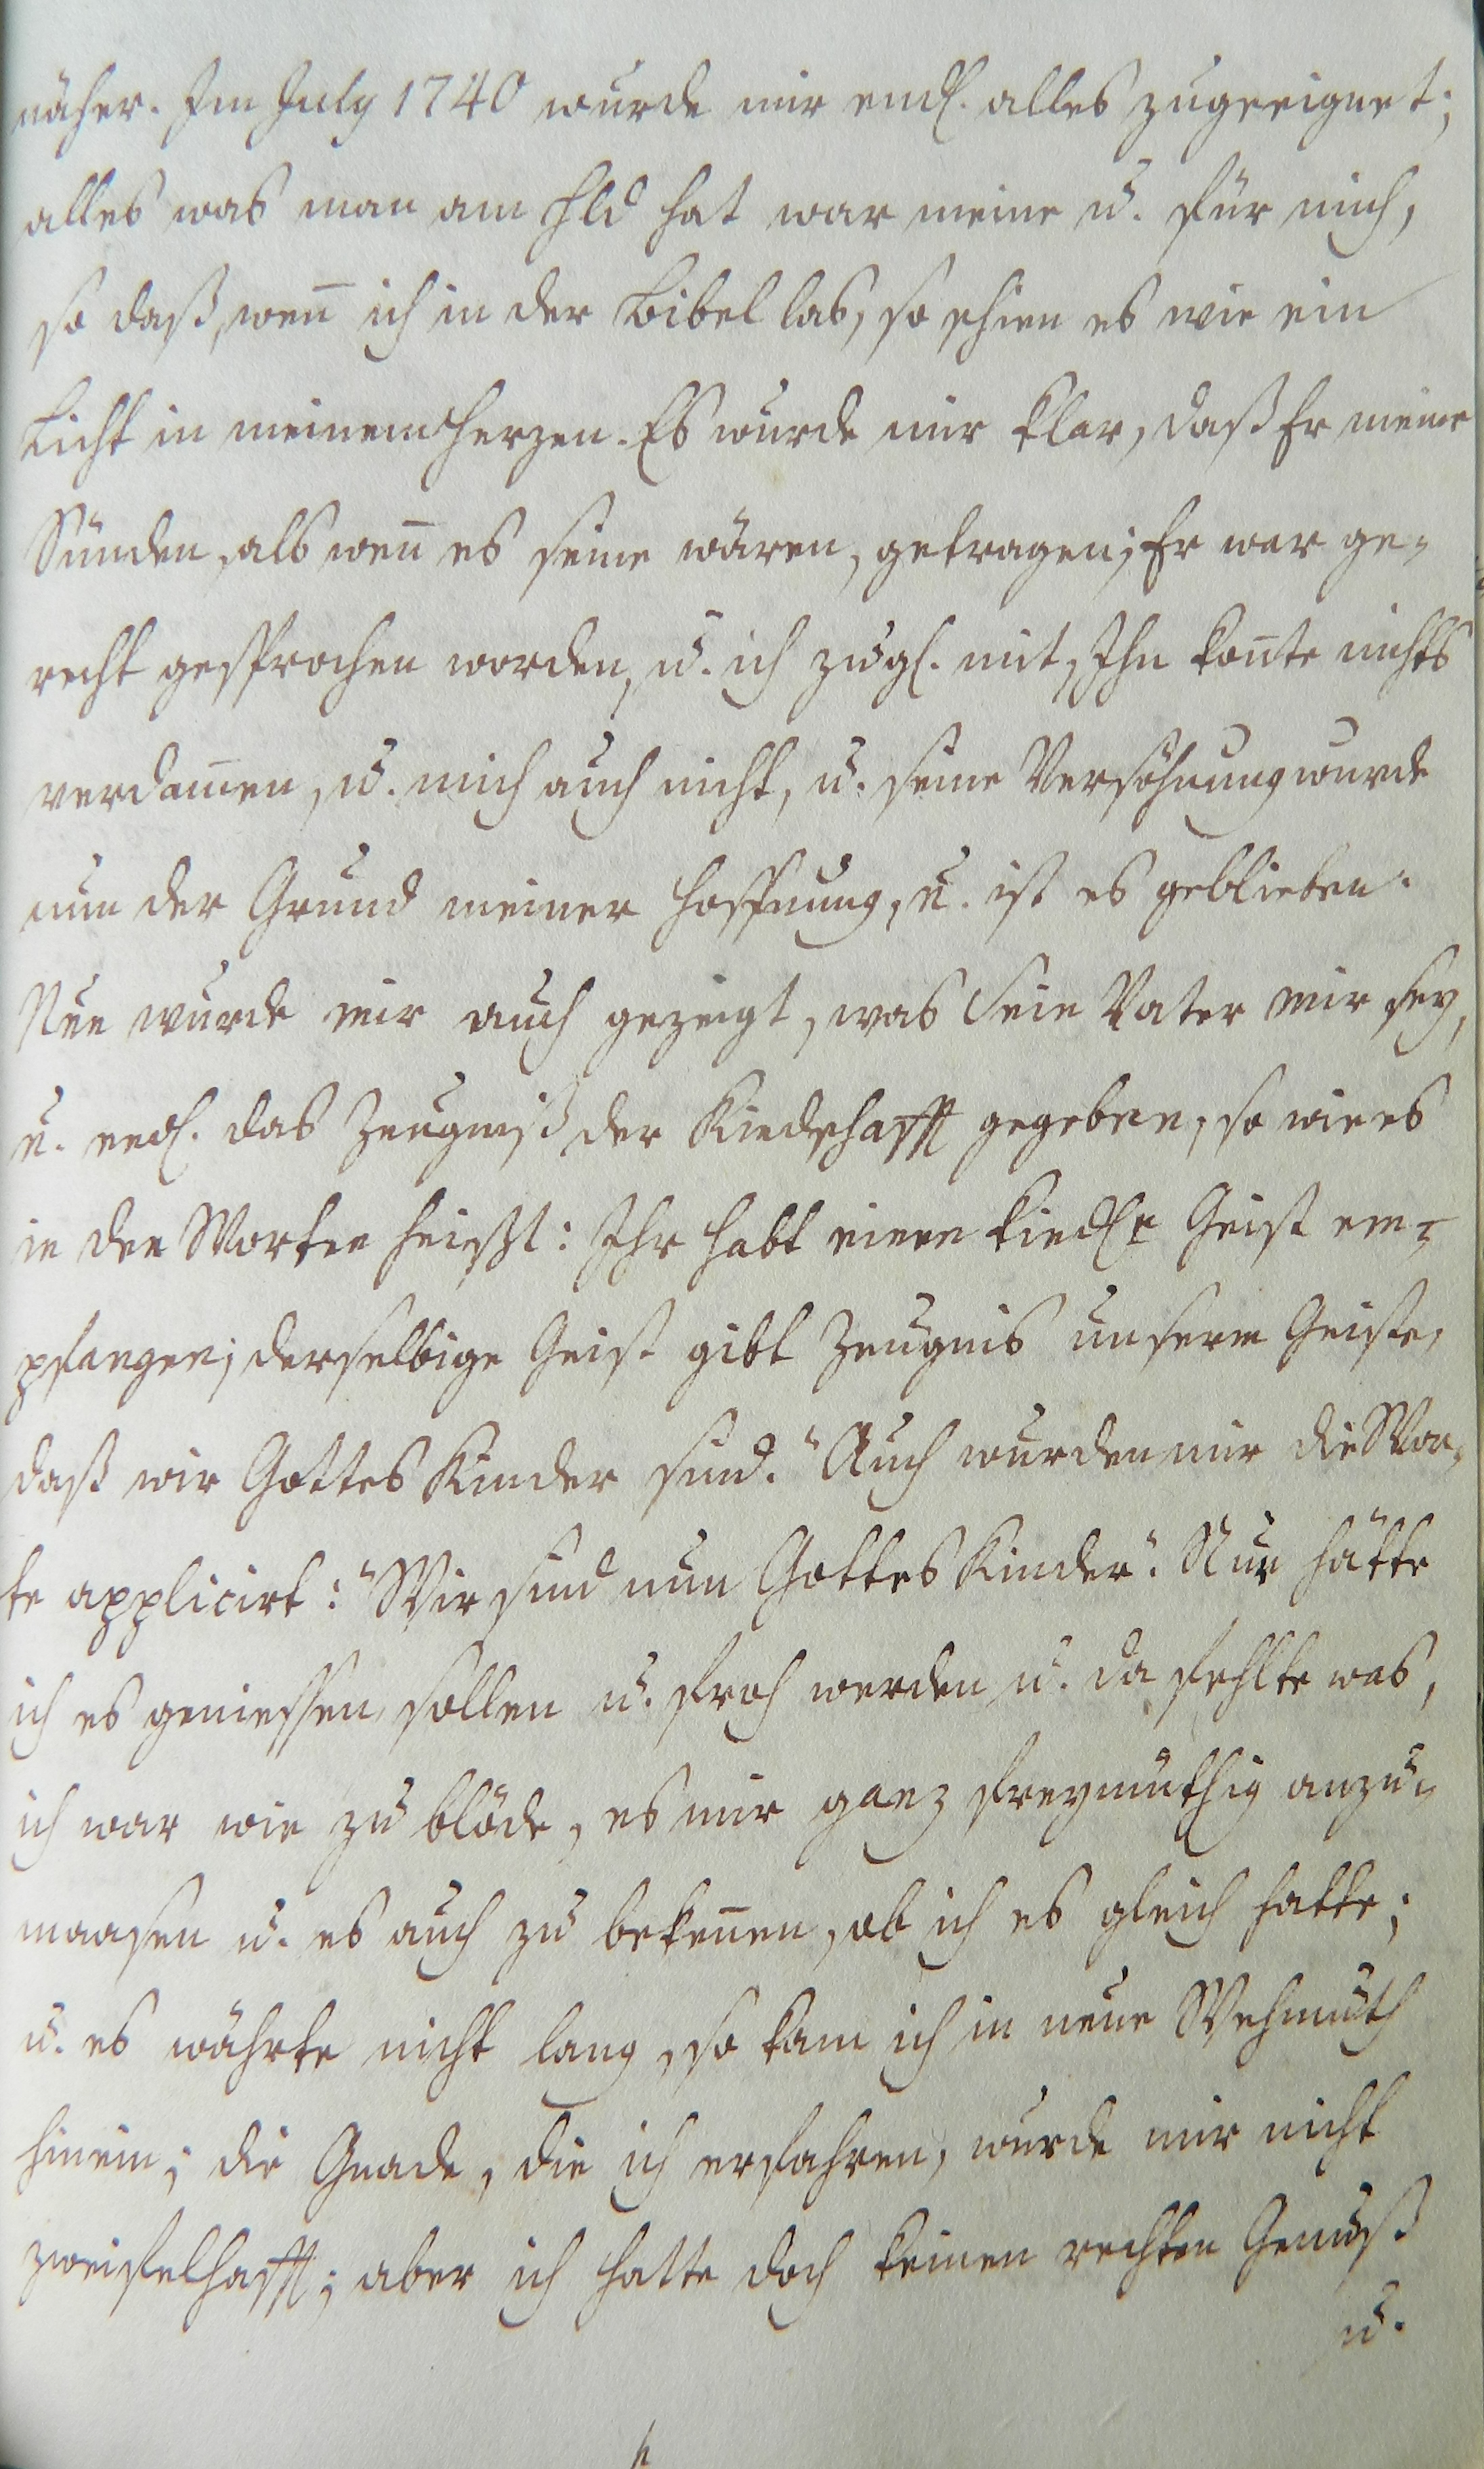 näher. Im July 1740 wurde mir endl. alles zugeeignet;
alles was man am Hld hat war meine u. für mich,
so daß, weñ ich in der Bibel las, so schien es wie ein
Licht in meinem Herzen. Es wurde mir klar, daß Er meine
Sünden, als weñ es seine wären, getragen; Er war ge-
recht gesprochen worden, u. ich zugl. mit, Ihn koñte nichts
verdam̃en, u. mich auch nicht, u. seine Versöhnung wurde
nun der Grund meiner Hoffnung, u. ist es geblieben.
Nun wurde mir auch gezeigt, was Sein Vater mir sey,
u. endl. das Zeugniß der Kindschafft gegeben, so wie es
in den Worten heißt: Ihr habt einen kindl. Geist em-
pfangen; derselbige Geist gibt Zeugnis unserm Geiste,
daß wir Gottes Kinder sind." Auch wurden mir die Wor-
te applicirt: "Wir sind nun Gottes Kinder". Nur hätte
ich es geniessen sollen u. froh werden u. da fehlte was,
ich war wie zu blöde, es mir ganz freymüthig anzu-
maasen u. es auch zu bekeñen, ob ich es gleich hatte;
u. es währte nicht lang, so kam ich in neue Wehmuth
hinein; die Gnade, die ich erfahren, wurde mir nicht
zweifelhafft; aber ich hatte doch keinen rechten Genuß
u.